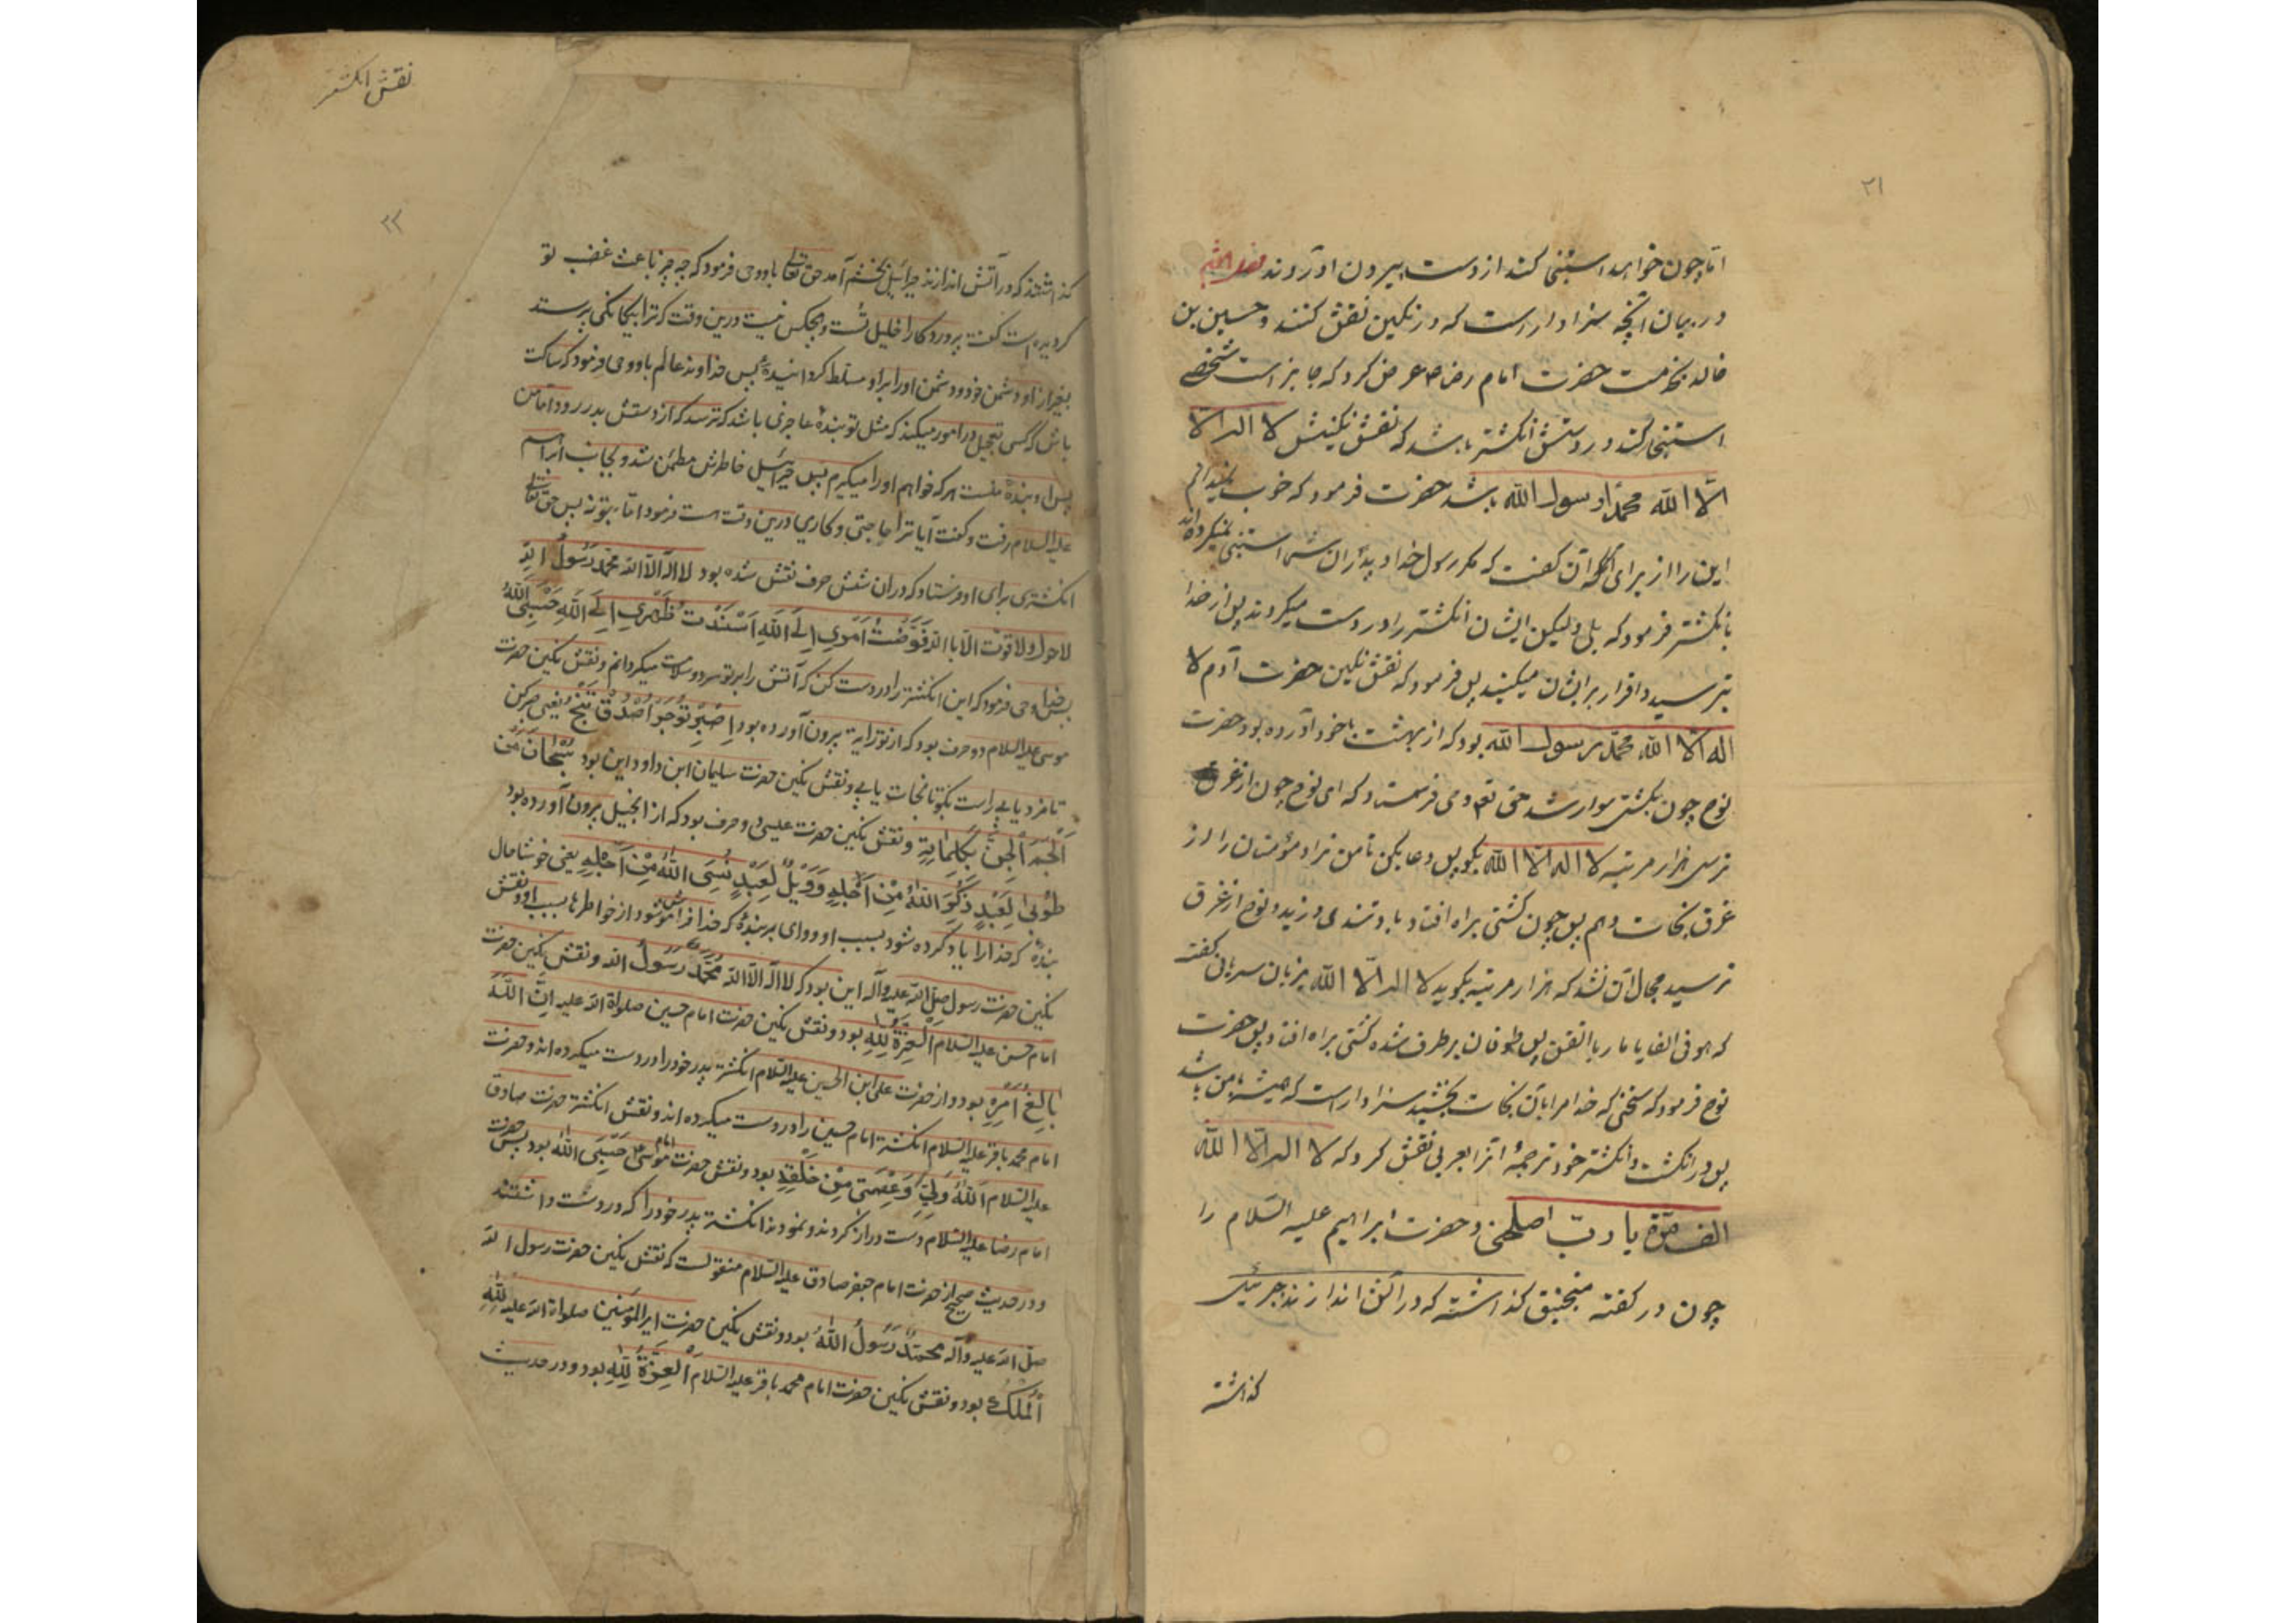 ۲۱
اما چون خواهد استنجی کند از دست بیرون اورد
در بیان آنچه سزاوار است که در نکین نقش کنند و حسین بن
خالد بخدمت حضرت امام رضا ع عرض کرد که جایز است شخصے
استنجا کند و در دستش انکشتر باشد که نقش نکینش لا اله الا
الا الله محمدا رسول الله باشد حضرت فرمود که خوب نمیدانم
این را از برای آن کفت که مکر رسول خدا و پدران شما استنجی نمیکرده‌اند
با نکشتر فرمود که بلی ولیکن ایشان انکشتر را در دست میکردند پس از خدا
بترسید و افترا بر ایشان میکنید پس فرمود که نقش نکین حضرت آدم لا
اله الا الله محمد رسول الله بود که از بهشت با خود آورده بود حضرت
نوح چون بکشتی سوار شد حق تع وحی فرستاد که ای نوح چون از غرق
ترسی هزار مرتبه لا اله الا الله بکو پس دعا بکن تا من ترا و مؤمنان را از
غرق نجات دهم پس چون کشتی براه افتاد باد تندی وزید و نوح از غرق
ترسید مجال آن نشد که هزار مرتبه بکوید لا اله الا الله بزبان سریانی کفت
که هوفی الفا یا ماریا اتقن پس طوفان برطرف شده کشتی براه افتاد پس حضرت
نوح فرمود که سخنی که خدا مرا بآن نجات بخشید سزاوار است که همیشه با من باشد
پس در انکشت و انکشتر خود ترجمهٔ آنرا بعربی نقش کرد که لا اله الا الله
الف مرة یا رب اصلحنی و حضرت ابراهیم علیه السلام را
چون در کفته منجنیق کذاشته که در آتش اندازند جبرئیل
کذاشته
نقش انکشتر
۲۲
کذاشتند که در آتش اندازند جبرائیل بخشم آمد حق تعالی باو وحی فرمود که چه چیز باعث غضب تو
کردیده است کفت پرورد کارا خلیل تست و هیچکس نیست درین وقت که ترا بیکانکی پرستد
بغیر از او و دشمن خود و دشمن او را بر او مسلط کردانیدهٔ پس خداوند عالم باو وحی فرمود که ساکت
باش که کسی تعجیل در امور میکند که مثل تو بندهٔ عاجزی باشد که ترسد که از دستش بدر رود اما من
پس او بندهٔ منست هر که خواهم او را میکیرم پس جبرائیل خاطرش مطمئن شد و بجانب ابراهیم
علیه السلام رفت و کفت آیا ترا حاجتی و کاری درین وقت هست فرمود اما بتو نه پس حق تعالی
انکشتری برای او فرستاد که در ان شش حرف نقش شده بود لا اله الا الله محمد رسول الله
لا حول ولا قوت الا با الله فوضت امری الی الله اسندت ظهری الی الله حسبی الله
پس خدا وحی فرمود که این انکشتر را در دست کن که آتش را بر تو سرد و سلامت میکردانم و نقش نکین حضرت
موسی علیه السلام دو حرف بود که از توراية بیرون آورده بود اِصْبِرْ تُوجَرْ اُصْدُقْ تَنْجُ یعنی صبر کن
تا مزد یابی راست بکو تا نجات یابی و نقش نکین حضرت سلیمان ابن داود این بود سُبْحَانَ مَنْ
اَلْجَمَ الْجِنَّ بِکَلِمَاتِهِ و نقش نکین حضرت عیسی دو حرف بود که از انجیل بیرون آورده بود
طُوبیٰ لِعَبْدٍ ذُکِرَ اللّٰهُ مِنْ اَجْلِهِ وَ وَیْلٌ لِعَبْدٍ نُسِیَ اللّٰهُ مِنْ اَجْلِهِ یعنی خوشا حال
بندهٔ که خدا را یاد کرده شود بسبب او و وای بر بندهٔ که خدا فراموش شود از خواطرها بسبب او و نقش
نکین حضرت رسول صلی الله علیه و آله این بود که لا اله الا الله محمد رسول الله و نقش نکین حضرت
امام حسن علیه السلام العزة لله بود و نقش نکین حضرت امام حسین صلواة الله علیه اِنَّ اللّٰهَ
بَالِغُ اَمْرِهِ بود و از حضرت علی ابن الحسین علیه السلام انکشتر پدر خود را در دست میکرده اند و حضرت
امام محمد باقر علیه السلام انکشتر امام حسین را در دست میکرده اند و نقش انکشتر حضرت صادق
علیه السلام اَللّٰهُ وَلِیّٖ وَ عِصْمَتی مِنْ خَلْقِهِ بود و نقش حضرت امام موسی حَسْبِیَ اللّٰهُ بود پس حضرت
امام رضا علیه السلام دست دراز کردند و نمودند انکشتر پدر خود را که در دست داشتند
و در حدیث صحیح از حضرت امام جعفر صادق علیه السلام منقولست که نقش نکین حضرت رسول الله
صلی الله علیه و آله محمد رسول الله بود و نقش نکین حضرت امیر المؤمنین صلواة الله علیه لِلّٰهِ
الْمُلْکُ بود و نقش نکین حضرت امام محمد باقر علیه السلام اَلْعِزَّةُ لِلّٰهِ بود و در حدیث